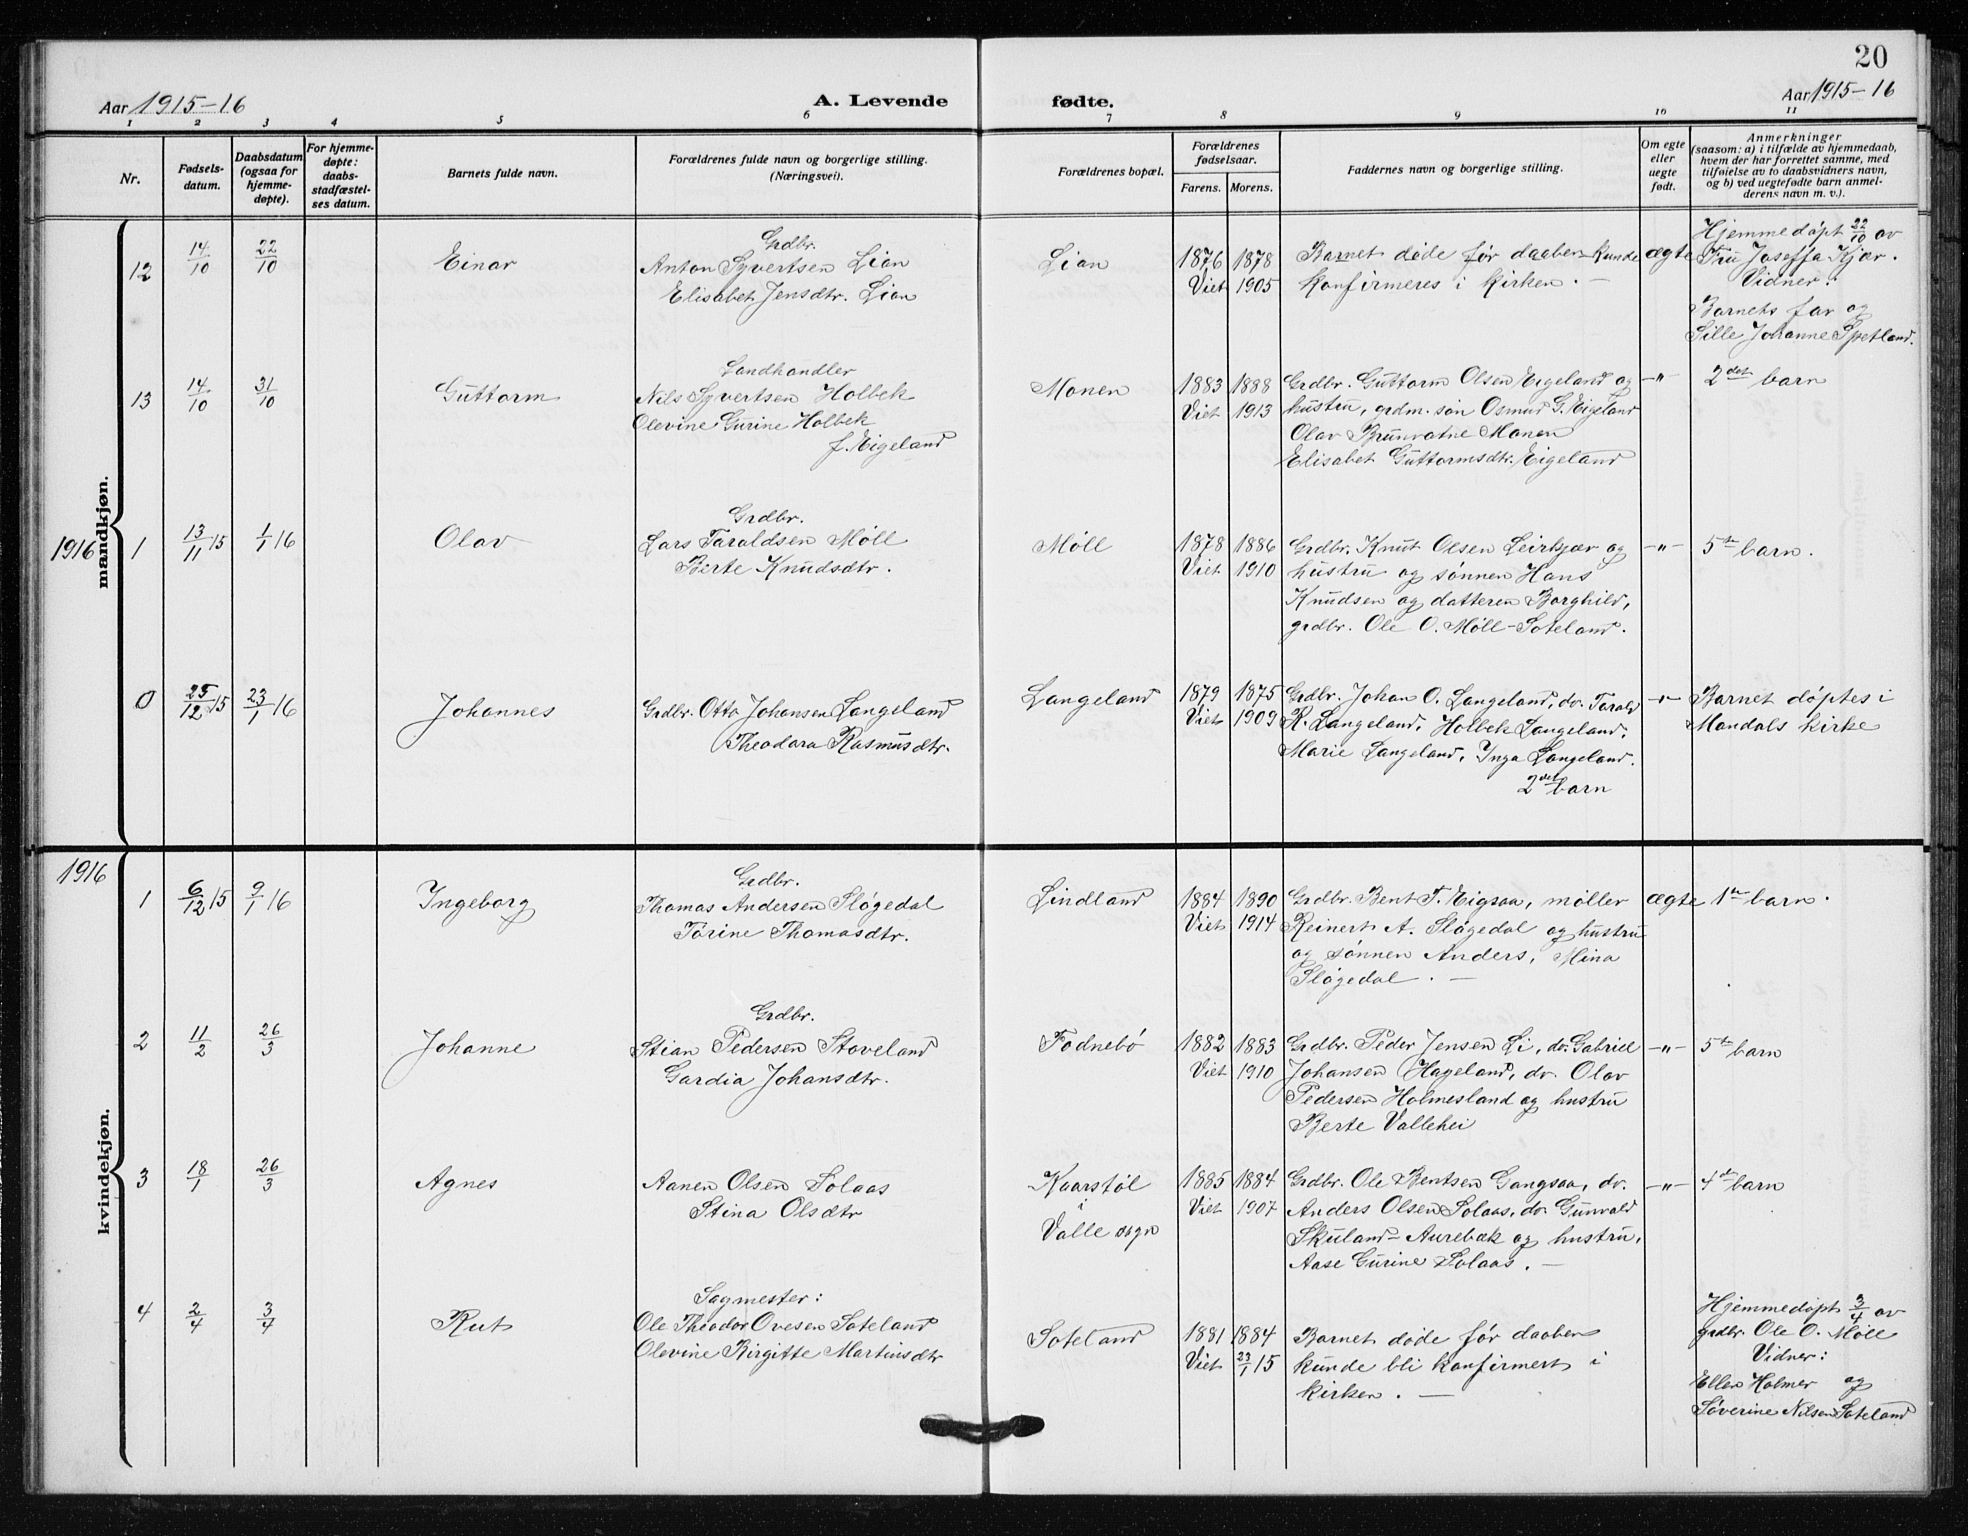 20
Aar 1915-16
A. Levende fødte.
Aar 1915-16
1 2 3 4 5 6 7 8 9 10 11
Nr.
Fødsels-
datum.
Daabsdatum
(ogsaa for
hjemme-
døpte).
For hjemme-
døpte:
daabs-
stadfæstel-
ses datum.
Barnets fulde navn.
Forældrenes fulde navn og borgerlige stilling.
(Næringsvei).
Forældrenes bopæl.
Forældrenes
fødselsaar.
Farens. Morens.
Faddernes navn og borgerlige stilling.
Om egte
eller
uegte
født.
Anmerkninger
(saasom: a) i tilfælde av hjemmedaab,
hvem der har forrettet samme, med
tilføielse av to daabsvidners navn,
og b) ved uegtefødte barn anmel-
derens navn m. v.).
mandkjøn.
12
14/10
22/10
Einar
Grdbr.
Anton Syvertsen Lian
Elisabet Jensdtr. Lian
Lian
1876 1878
Viet 1905
Barnet døde før daaben kunde
konfirmeres i kirken. —
ægte
Hjemmedøpt 22/10 av
Fru Joseffa Kjær.
Vidner:
Barnets far og
Sille Johanne Spetland.
13
14/10
31/10
Guttorm
Landhandler
Nils Syvertsen Holbek
Olevine Gurine Holbek
f. Eigeland
Monen
1883 1888
Viet 1913
Grdbr. Guttorm Olsen Eigeland og
hustru, grdm. søn Osmud G. Eigeland
Olav Brunvatne Monen
Elisabet Guttormsdtr. Eigeland
-"-
2det barn
1916
1
13/11 15
1/1 16
Olav
Grdbr.
Lars Taraldsen Møll
Berte Knudsdtr.
Møll
1878 1886
Viet 1910
Grdbr. Knut Olsen Leirkjær og
hustru og sønnen Hans
Knudsen og datteren Borghild,
grdbr. Ole O. Møll-Soteland.
-"-
5te barn.
0
25/12 15
23/1 16
Johannes
Grdbr. Otto Johansen Langeland
Theodara Rasmusdtr.
Langeland
1879 1875
Viet 1909
Grdbr. Johan O. Langeland, do. Tarald
R. Langeland, Holbek Langeland,
Marie Langeland, Inga Langeland.
2det barn
-"-
Barnet døptes i
Mandals kirke
kvindekjøn.
1916
1
6/12 15
9/1 16
Ingeborg
Grdbr.
Thomas Andersen Sløgedal
Torine Thomasdtr.
Lindland
1884 1890
Viet 1914
Grdbr. Bent T. Eigsaa, møller
Reinert A. Sløgedal og hustru
og sønnen Anders, Mina
Sløgedal. —
ægte
1te barn.
2
11/2
26/3
Johanne
Grdbr.
Stian Pedersen Stoveland
Gardia Johansdtr.
Fodnebø
1882 1883
Viet 1910
Grdbr. Peder Jensen Li, do. Gabriel
Johansen Hageland, do. Olav
Pedersen Holmesland og hustru
Berte Vallehei
-"-
5te barn
3
18/1
26/3
Agnes
Aanen Olsen Solaas
Stina Olsdtr
Kaarstøl
i
Valle sogn
1885 1884
Viet 1907
Grdbr. Ole Bentsen Gangsaa, do.
Anders Olsen Solaas, do. Gunvald
Skuland-Aurebæk og hustru,
Aase Gurine Solaas. —
-"-
4de barn
4
2/4
3/4
Rut
Sagmester:
Ole Theodor Ovesen Soteland
Olevine Birgitte Martinsdtr
Soteland
1881 1884
Viet 23/1 15
Barnet døde før daaben
kunde bli konfirmert i
kirken. —
Hjemmedøpt 3/4 av
grdbr. Ole O. Møll
Vidner:
Ellen Holmer og
Søverine Nilsen Soteland